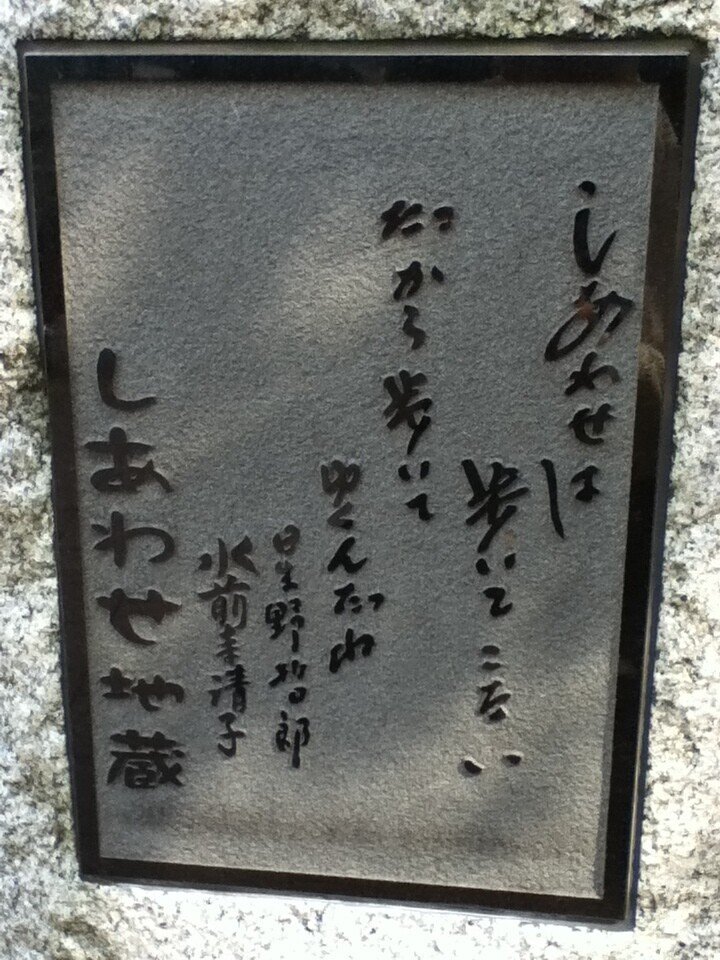 しあわせは
歩いてこない
だから歩いて
ゆくんだね
星野哲郎
水前寺清子
しあわせ地蔵